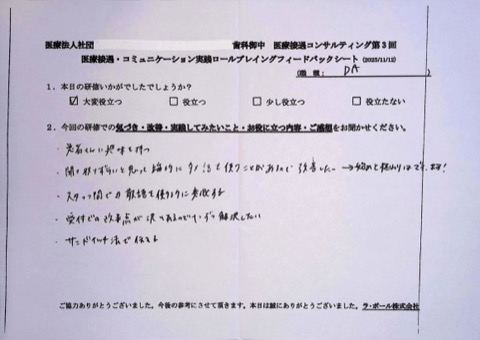 医療法人社団 歯科御中 医療接遇コンサルティング第3回
医療接遇・コミュニケーション実践ロールプレイングフィードバックシート (2025/11/12)
(職種: DA )
1. 本日の研修いかがでしたでしょうか?
☑ 大変役立つ □ 役立つ □ 少し役立つ □ 役立たない
2. 今回の研修での気づき・改善・実践してみたいこと・お役に立つ内容・ご感想をお聞かせください。
・患者さんに興味を持つ
・聞き取りずらいと思って 語を使うことがあるので改善したい → 始めと終わりはです、ます!
・スタッフ間での 敬語を使うように意識する
・受付での改善点が沢山あるので 解決したい
・サンドイッチ法で伝える
ご協力ありがとうございました。今後の参考にさせて頂きます。本日は誠にありがとうございました。ラ・ポール株式会社